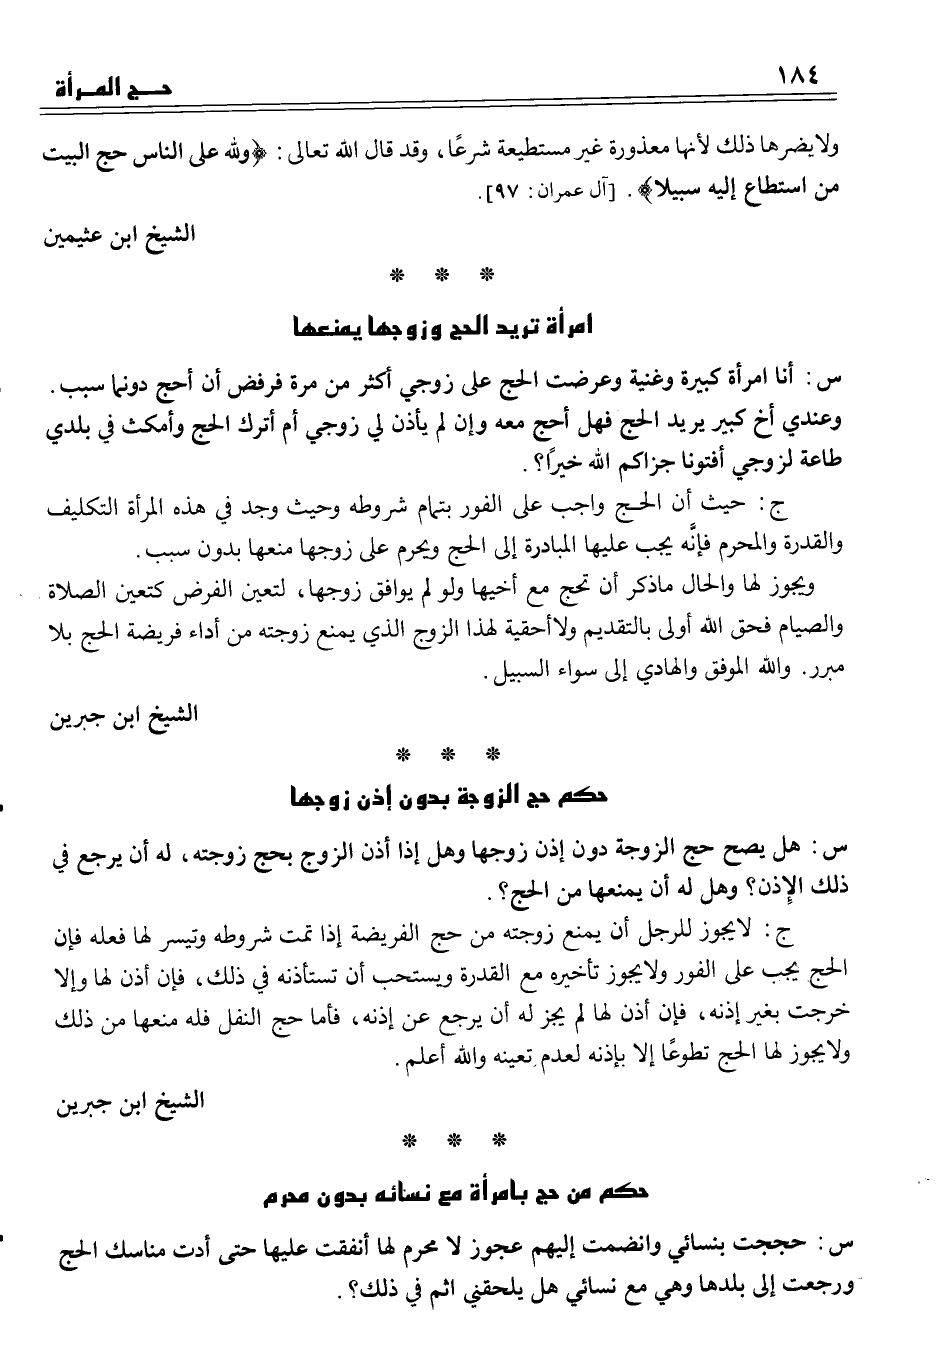 ١٨٤
حـــج المـــرأة
ولايضرها ذلك لأنها معذورة غير مستطيعة شرعًا، وقد قال الله تعالى: ﴿ولله على الناس حج البيت
من استطاع إليه سبيلا﴾. [آل عمران: ٩٧].
الشيخ ابن عثيمين
* * *
امرأة تريد الحج وزوجها يمنعها
س: أنا امرأة كبيرة وغنية وعرضت الحج على زوجي أكثر من مرة فرفض أن أحج دونما سبب.
وعندي أخ كبير يريد الحج فهل أحج معه وإن لم يأذن لي زوجي أم أترك الحج وأمكث في بلدي
طاعة لزوجي أفتونا جزاكم الله خيرًا؟.
ج: حيث أن الحج واجب على الفور بتمام شروطه وحيث وجد في هذه المرأة التكليف
والقدرة والمحرم فإنَّه يجب عليها المبادرة إلى الحج ويحرم على زوجها منعها بدون سبب.
ويجوز لها والحال ماذكر أن تحج مع أخيها ولو لم يوافق زوجها، لتعين الفرض كتعين الصلاة
والصيام فحق الله أولى بالتقديم ولاأحقية لهذا الزوج الذي يمنع زوجته من أداء فريضة الحج بلا
مبرر. والله الموفق والهادي إلى سواء السبيل.
الشيخ ابن جبرين
* * *
حكم حج الزوجة بدون إذن زوجها
س: هل يصح حج الزوجة دون إذن زوجها وهل إذا أذن الزوج بحج زوجته، له أن يرجع في
ذلك الإِذن؟ وهل له أن يمنعها من الحج؟.
ج: لايجوز للرجل أن يمنع زوجته من حج الفريضة إذا تمت شروطه وتيسر لها فعله فإن
الحج يجب على الفور ولايجوز تأخيره مع القدرة ويستحب أن تستأذنه في ذلك، فإن أذن لها وإلا
خرجت بغير إذنه، فإن أذن لها لم يجز له أن يرجع عن إذنه، فأما حج النفل فله منعها من ذلك
ولايجوز لها الحج تطوعًا إلا بإذنه لعدم تعينه والله أعلم.
الشيخ ابن جبرين
* * *
حكم من حج بامرأة مع نسائه بدون محرم
س: حججت بنسائي وانضمت إليهم عجوز لا محرم لها أنفقت عليها حتى أدت مناسك الحج
ورجعت إلى بلدها وهي مع نسائي هل يلحقني اثم في ذلك؟.